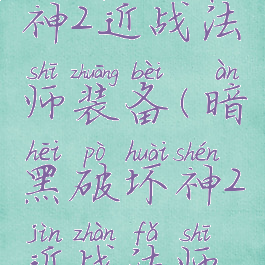 神2近战法
shī zhuāng bèi àn
师装备(暗
hēi pò huài shén
黑破坏神2
jìn zhàn fǎ shī
近战法师